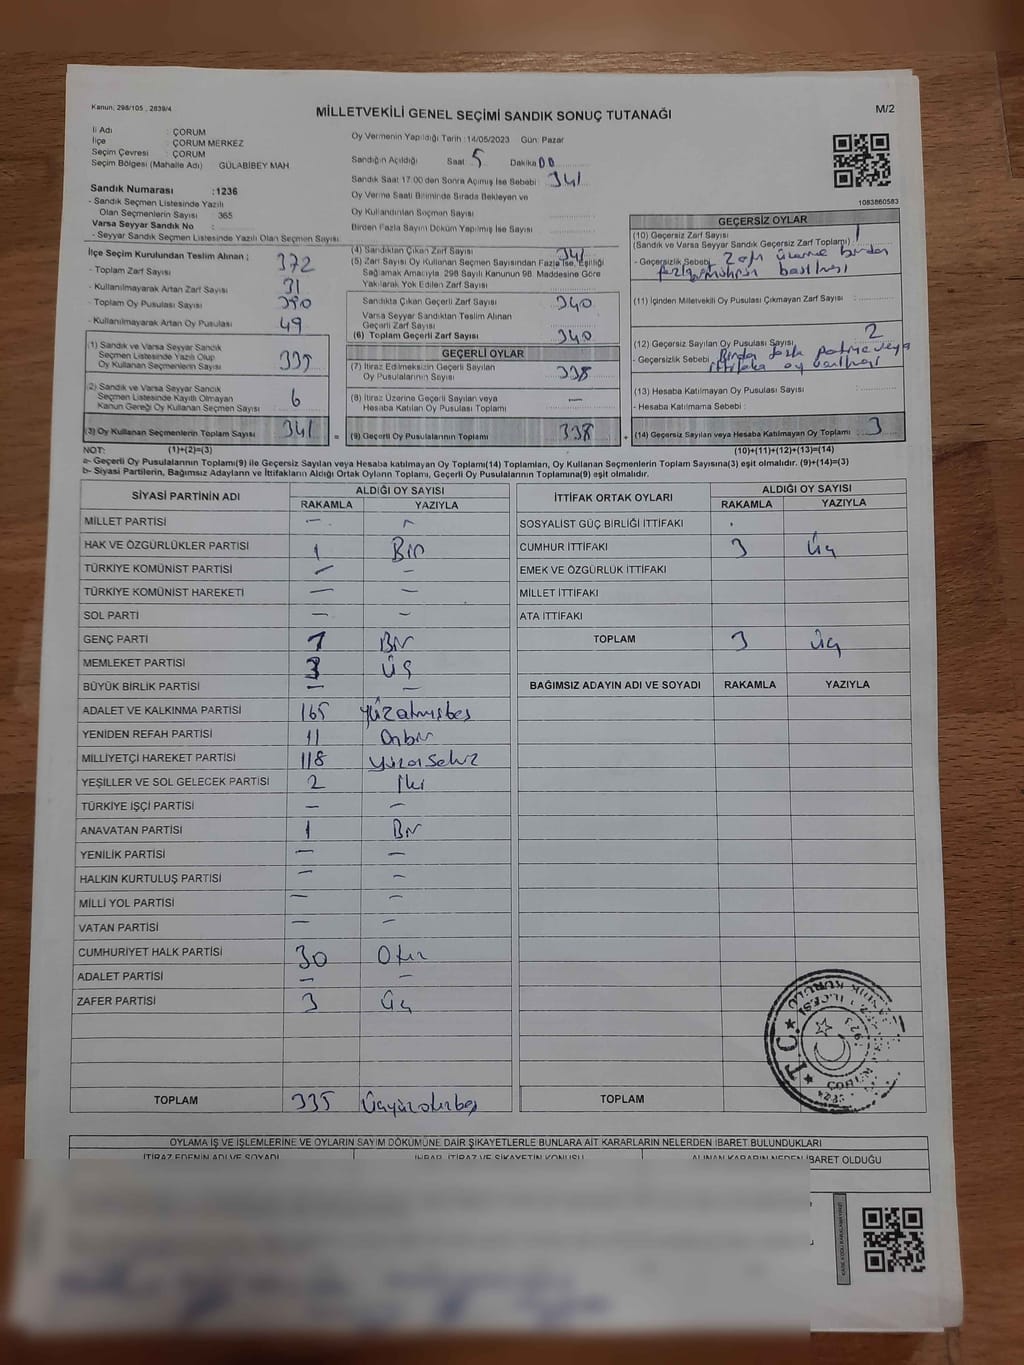 Kanun, 298/105 , 2839/4
MİLLETVEKİLİ GENEL SEÇİMİ SANDIK SONUÇ TUTANAĞI
M/2
İl Adı : ÇORUM
İlçe : ÇORUM MERKEZ
Seçim Çevresi : ÇORUM
Seçim Bölgesi (Mahalle Adı) GÜLABİBEY MAH.
Sandık Numarası :1236
- Sandık Seçmen Listesinde Yazılı
Olan Seçmenlerin Sayısı 365
Varsa Seyyar Sandık No :
- Seyyar Sandık Seçmen Listesinde Yazılı Olan Seçmen Sayısı
Oy Vermenin Yapıldığı Tarih :14/05/2023 Gün: Pazar
Sandığın Açıldığı Saat 5 Dakika 00
Sandık Saat 17.00'den Sonra Açılmış İse Sebebi : 341
Oy Verme Saati Bitiminde Sırada Bekleyen ve
Oy Kullandırılan Seçmen Sayısı
Birden Fazla Sayım Döküm Yapılmış İse Sayısı
1083860583
İlçe Seçim Kurulundan Teslim Alınan ; 372
- Toplam Zarf Sayısı
- Kullanılmayarak Artan Zarf Sayısı 31
- Toplam Oy Pusulası Sayısı 390
- Kullanılmayarak Artan Oy Pusulası 49
(1) Sandık ve Varsa Seyyar Sandık
Seçmen Listesinde Yazılı Olup
Oy Kullanan Seçmenlerin Sayısı 335
(2) Sandık ve Varsa Seyyar Sandık
Seçmen Listesinde Kayıtlı Olmayan
Kanun Gereği Oy Kullanan Seçmen Sayısı 6
(3) Oy Kullanan Seçmenlerin Toplam Sayısı 341 =
(4) Sandıktan Çıkan Zarf Sayısı 341
(5) Zarf Sayısı Oy Kullanan Seçmen Sayısından Fazla İse, Eşitliği
Sağlamak Amacıyla 298 Sayılı Kanunun 98. Maddesine Göre
Yakılarak Yok Edilen Zarf Sayısı
Sandıkta Çıkan Geçerli Zarf Sayısı 340
Varsa Seyyar Sandıktan Teslim Alınan
Geçerli Zarf Sayısı
(6) Toplam Geçerli Zarf Sayısı 340
GEÇERLİ OYLAR
(7) İtiraz Edilmeksizin Geçerli Sayılan
Oy Pusulalarının Sayısı 338
(8) İtiraz Üzerine Geçerli Sayılan veya
Hesaba Katılan Oy Pusulası Toplamı —
(9) Geçerli Oy Pusulalarının Toplamı 338 +
GEÇERSİZ OYLAR
(10) Geçersiz Zarf Sayısı 1
(Sandık ve Varsa Seyyar Sandık Geçersiz Zarf Toplamı)
- Geçersizlik Sebebi: Zarf üzerine birden
fazla mührün basılması
(11) İçinden Milletvekili Oy Pusulası Çıkmayan Zarf Sayısı :
(12) Geçersiz Sayılan Oy Pusulası Sayısı 2
- Geçersizlik Sebebi: Birden fazla partiye veya
ittifaka oy basılması
(13) Hesaba Katılmayan Oy Pusulası Sayısı :
- Hesaba Katılmama Sebebi :
(14) Geçersiz Sayılan veya Hesaba Katılmayan Oy Toplamı : 3
NOT: (1)+(2)=(3) (10)+(11)+(12)+(13)=(14)
a- Geçerli Oy Pusulalarının Toplamı(9) ile Geçersiz Sayılan veya Hesaba katılmayan Oy Toplamı(14) Toplamları, Oy Kullanan Seçmenlerin Toplam Sayısına(3) eşit olmalıdır. (9)+(14)=(3)
b- Siyasi Partilerin, Bağımsız Adayların ve İttifakların Aldığı Ortak Oyların Toplamı, Geçerli Oy Pusulalarının Toplamına(9) eşit olmalıdır.
SİYASİ PARTİNİN ADI ALDIĞI OY SAYISI
RAKAMLA YAZIYLA
MİLLET PARTİSİ — —
HAK VE ÖZGÜRLÜKLER PARTİSİ 1 Bir
TÜRKİYE KOMÜNİST PARTİSİ — —
TÜRKİYE KOMÜNİST HAREKETİ — —
SOL PARTİ — —
GENÇ PARTİ 1 Bir
MEMLEKET PARTİSİ 3 üç
BÜYÜK BİRLİK PARTİSİ — —
ADALET VE KALKINMA PARTİSİ 165 yüzatmışbeş
YENİDEN REFAH PARTİSİ 11 Onbir
MİLLİYETÇİ HAREKET PARTİSİ 118 yüzonsekiz
YEŞİLLER VE SOL GELECEK PARTİSİ 2 İki
TÜRKİYE İŞÇİ PARTİSİ — —
ANAVATAN PARTİSİ 1 Bir
YENİLİK PARTİSİ — —
HALKIN KURTULUŞ PARTİSİ — —
MİLLİ YOL PARTİSİ — —
VATAN PARTİSİ — —
CUMHURİYET HALK PARTİSİ 30 Otuz
ADALET PARTİSİ — —
ZAFER PARTİSİ 3 üç
TOPLAM 335 Üçyüzotuzbeş
İTTİFAK ORTAK OYLARI ALDIĞI OY SAYISI
RAKAMLA YAZIYLA
SOSYALİST GÜÇ BİRLİĞİ İTTİFAKI
CUMHUR İTTİFAKI 3 Üç
EMEK VE ÖZGÜRLÜK İTTİFAKI
MİLLET İTTİFAKI
ATA İTTİFAKI
TOPLAM 3 üç
BAĞIMSIZ ADAYIN ADI VE SOYADI RAKAMLA YAZIYLA
TOPLAM
T.C.
OYLAMA İŞ VE İŞLEMLERİNE VE OYLARIN SAYIM DÖKÜMÜNE DAİR ŞİKAYETLERLE BUNLARA AİT KARARLARIN NELERDEN İBARET BULUNDUKLARI
İTİRAZ EDENİN ADI VE SOYADI İHBAR, İTİRAZ VE ŞİKAYETİN KONUSU ALINAN KARARIN NEDEN İBARET OLDUĞU